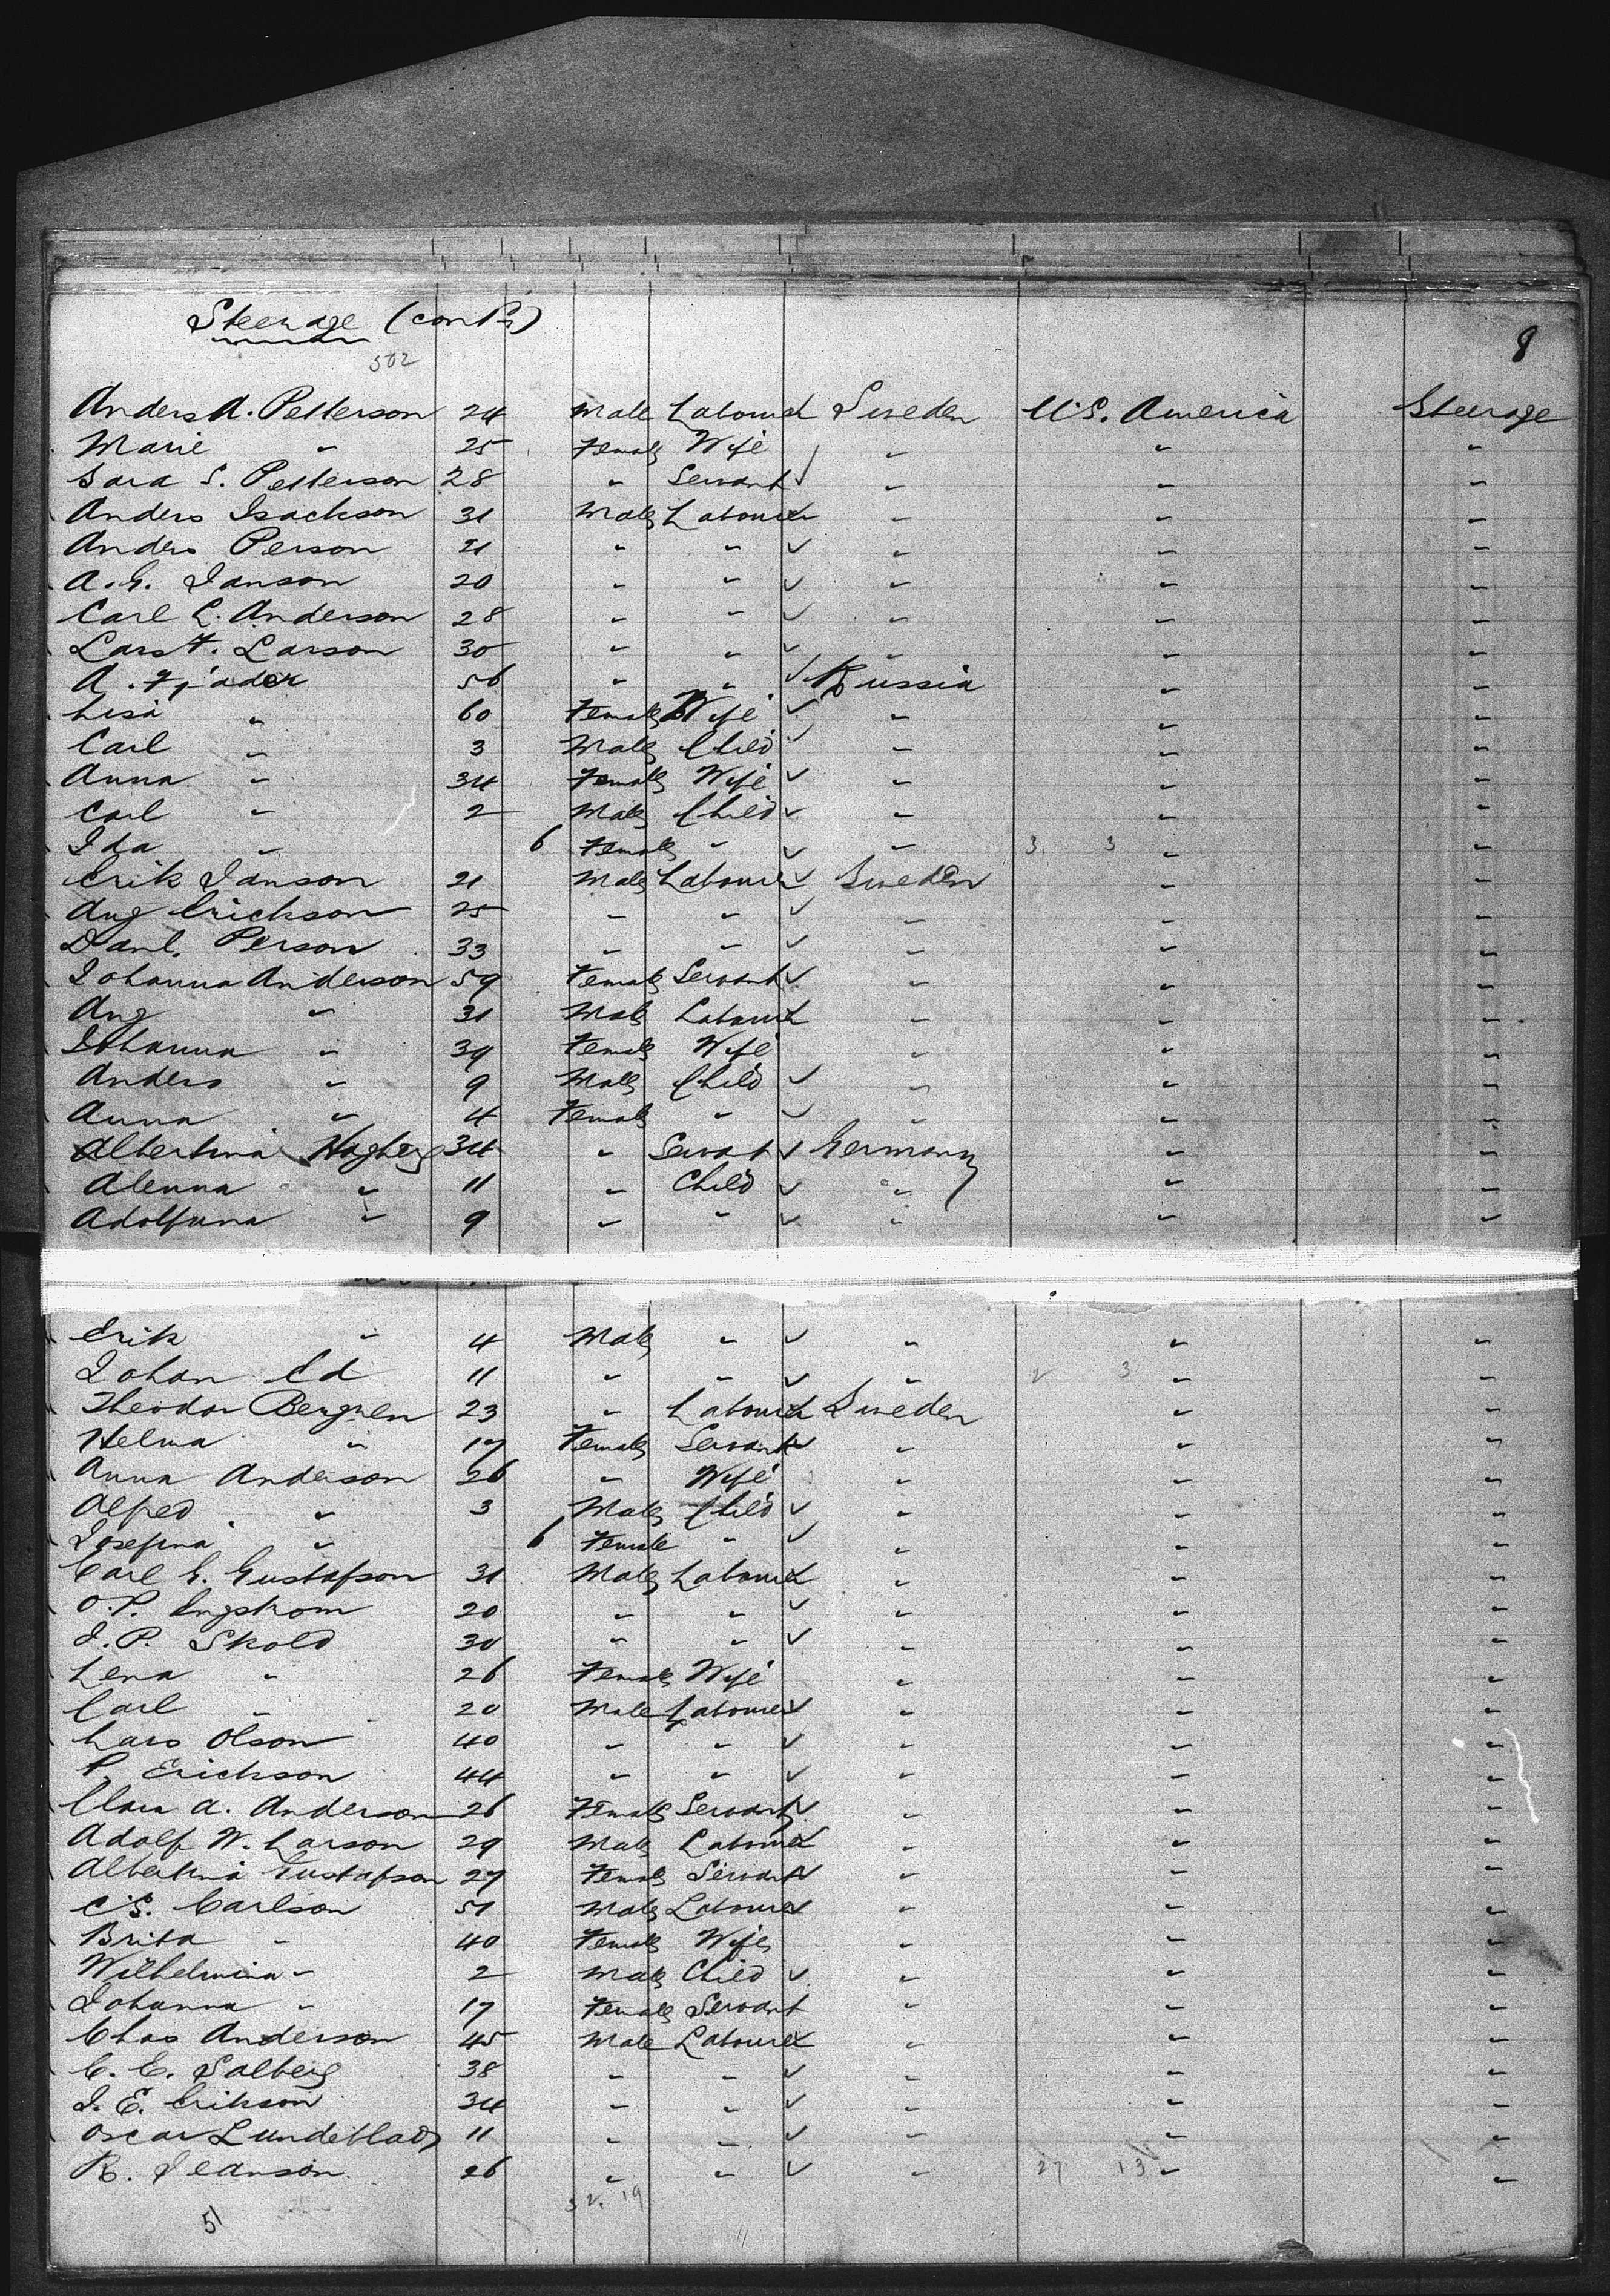 Steerage (contd)
8
502
Anders A. Petterson 24 Male Labourer Sweden U.S. America Steerage
Marie " 25 Female Wife " " "
Sara S. Petterson 28 " Servant " " "
Anders Isackson 31 Male Labourer " " "
Anders Person 21 " " " " "
A. G. Janson 20 " " " " "
Carl L. Anderson 28 " " " " "
Lars F. Larson 30 " " " " "
A. Fjader 56 " " Russia " "
Lisa " 60 Female Wife " " "
Carl " 3 Male Child " " "
Anna " 34 Female Wife " " "
Carl " 2 Male Child " " "
Ida " 6 Female " " 3 3 " "
Erik Janson 21 Male Labourer Sweden " "
Aug Erickson 25 " " " " "
Danl. Person 33 " " " " "
Johanna Anderson 59 Female Servant " " "
Aug " 31 Male Labourer " " "
Johanna " 39 Female Wife " " "
Anders " 9 Male Child " " "
Anna " 4 Female " " " "
Albertina Hagberg 34 " Servant Germany " "
Alenna " 11 " Child " " "
Adolfina " 9 " " " " "
Erik " 4 Male " " " "
Johan Ed 11 " " " 2 3 " "
Theodor Bergren 23 " Labourer Sweden " "
Helma " 17 Female Servant " " "
Anna Anderson 26 " Wife " " "
Alfred " 3 Male Child " " "
Josefina " 6 Female " " " "
Carl G. Gustafson 31 Male Labourer " " "
O. P. Engstrom 20 " " " " "
J. P. Skold 30 " " " " "
Lena " 26 Female Wife " " "
Carl " 20 Male Labourer " " "
Lars Olson 40 " " " " "
P. Erickson 44 " " " " "
Clara A. Anderson 26 Female Servant " " "
Adolf W. Larson 29 Male Labourer " " "
Albertina Gustafson 27 Female Servant " " "
C. G. Carlson 51 Male Labourer " " "
Brita " 40 Female Wife " " "
Wilhelmina " 2 Male Child " " "
Johanna " 17 Female Servant " " "
Chas Anderson 45 Male Labourer " " "
C. E. Salberg 38 " " " " "
J. E. Erikson 34 " " " " "
Oscar Lundeblad 11 " " " " "
R. Jeanson 26 " " " 27 13 " "
32. 19
51